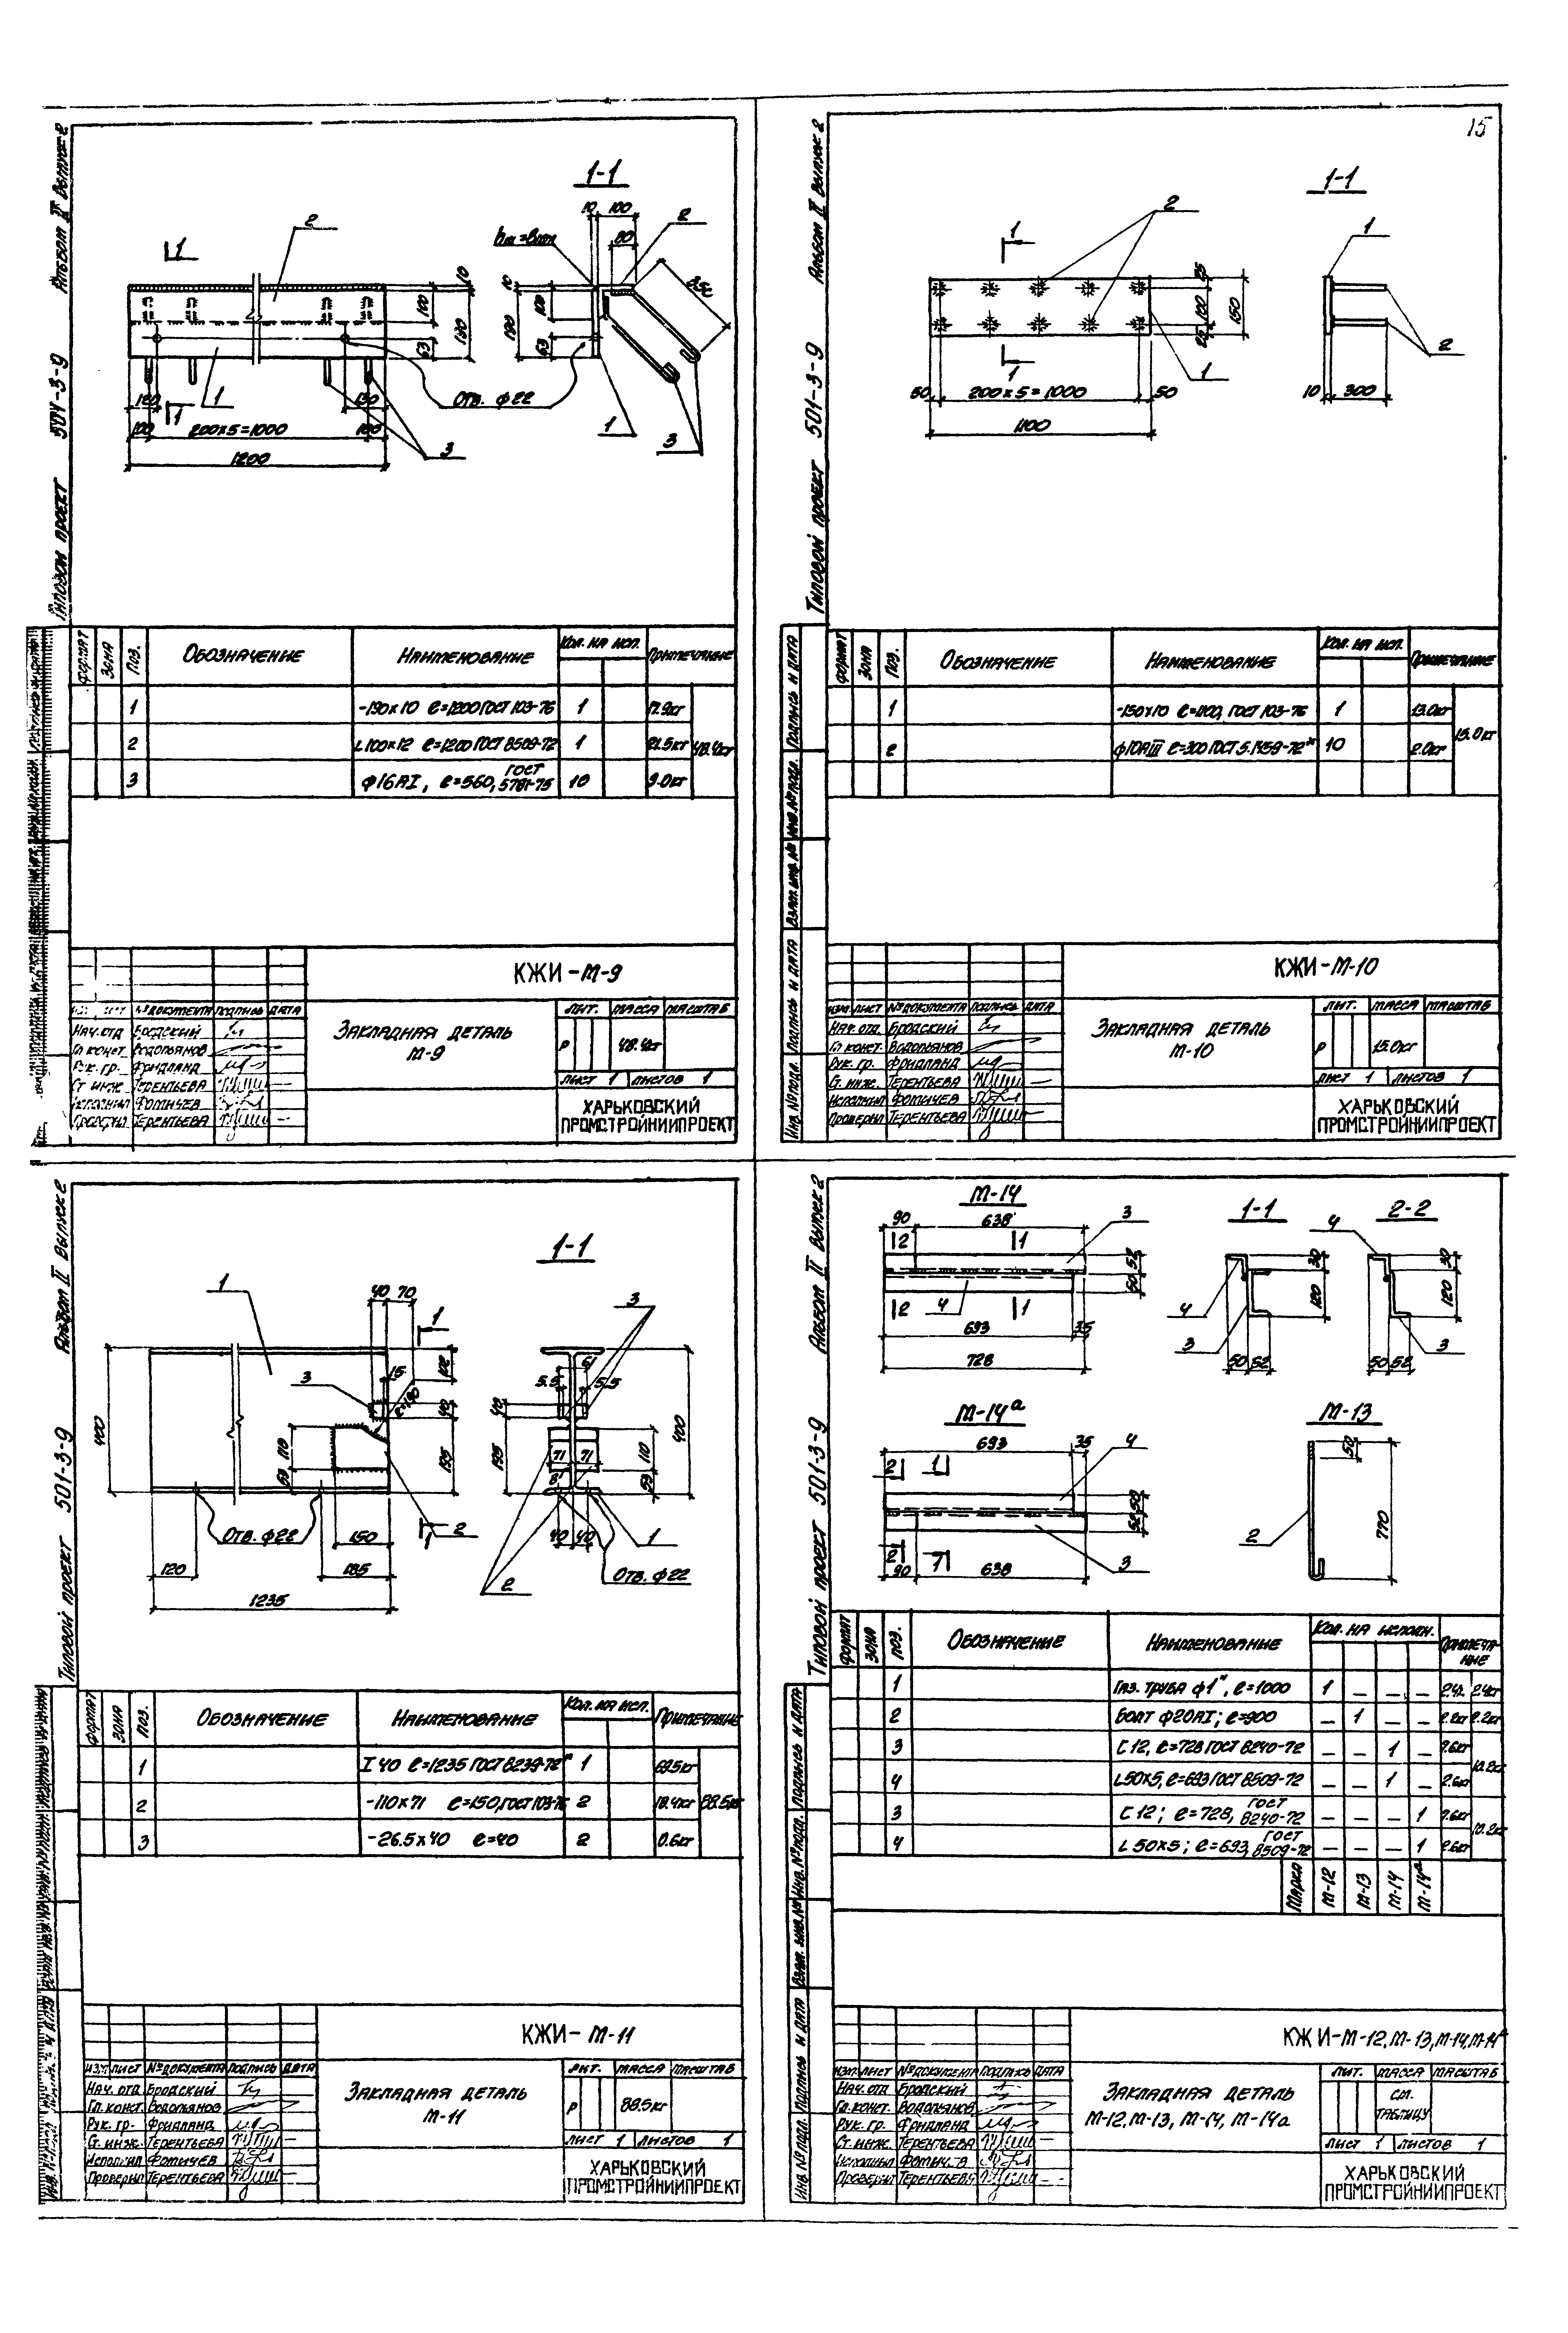 15
Альбом II Выпуск 2
Типовой проект 501-3-9
1-1
1
2
10 100
80
2
hш=8мм
10
100
190
63
Отв. ф22
1
3
150
100
200×5=1000
100
1200
Формат
Зона
Поз.
Обозначение
Наименование
Кол. на исп.
Примечание
1 -190×10 ℓ=1200 ГОСТ 103-76 1 17.9кг
2 L100×12 ℓ=1200 ГОСТ 8509-72 1 21.5кг 48.4кг
3 ф16АI, ℓ=560, ГОСТ 5781-75 10 9.0кг
КЖИ-М-9
№ документа подпись дата
Нач. отд Бродский
Гл конст. Водопьянов
Рук. гр. Фридланд
Ст инж. Терентьева
Исполнил Фотичев
Проверил Терентьева
Закладная деталь
М-9
Лит. Масса Масштаб
Р 48.4кг
Лист 1 Листов 1
ХАРЬКОВСКИЙ
ПРОМСТРОЙНИИПРОЕКТ
Альбом II Выпуск 2
Типовой проект 501-3-9
1-1
1
2
25
100
25
150
50 200×5=1000 50
1100
10 300
Подпись и дата
Инв. № подл.
Взам. инв. №
Формат
Зона
Поз.
Обозначение
Наименование
Кол. на исп.
Примечание
1 -150×10 ℓ=1100, ГОСТ 103-76 1 13.0кг
2 ф10АIII ℓ=300 ГОСТ 5.1459-72* 10 2.0кг
15.0кг
КЖИ-М-10
Изм. лист № документа подпись дата
Нач. отд. Бродский
Гл конст. Водопьянов
Рук. гр. Фридланд
Ст. инж. Терентьева
Исполнил Фотичев
Проверил Терентьева
Закладная деталь
М-10
Лит. Масса Масштаб
Р 15.0кг
Лист 1 Листов 1
ХАРЬКОВСКИЙ
ПРОМСТРОЙНИИПРОЕКТ
Альбом II Выпуск 2
Типовой проект 501-3-9
1-1
1
40 70
1
102
15
3
40
195
400
110
59
Отв. ф22
150
2
120
185
1235
3
61
5.5 5.5
40
195
71 71
81
110
59
400
40 40
1
2
Отв. ф22
Формат
Зона
Поз.
Обозначение
Наименование
Кол. на исп.
Примечание
1 I 40 ℓ=1235 ГОСТ 8239-72* 1 69.5кг
2 -110×71 ℓ=150, ГОСТ 103-76 2 18.4кг 88.5кг
3 -26.5×40 ℓ=40 2 0.6кг
КЖИ-М-11
Изм. лист № документа подпись дата
Нач. отд Бродский
Гл. конст. Водопьянов
Рук. гр. Фридланд
Ст. инж. Терентьева
Исполнил Фотичев
Проверил Терентьева
Закладная деталь
М-11
Лит. Масса Масштаб
Р 88.5кг
Лист 1 Листов 1
ХАРЬКОВСКИЙ
ПРОМСТРОЙНИИПРОЕКТ
Альбом II Выпуск 2
Типовой проект 501-3-9
М-14
90 638
3
2 1
52
50
2 4 1
693 35
728
1-1
2-2
4
30
120
4
3
50 52
30
120
3
50 52
М-14а
693 35
4
2 1
50
52
2 1
3
90 638
М-13
50
2
770
Формат
Зона
Поз.
Обозначение
Наименование
Кол. на исполн.
Примечание
1 Газ. труба ф1", ℓ=1000 1 – – – 2.4кг
2 Болт ф20АI; ℓ=900 – 1 – – 2.2кг 2.2кг
3 С 12, ℓ=728 ГОСТ 8240-72 – – 1 7.6кг
10.2кг
4 L50×5, ℓ=693 ГОСТ 8509-72 – – 1 2.6кг
3 С 12; ℓ=728, ГОСТ 8240-72 – – – 1 7.6кг
10.2кг
4 L 50×5; ℓ=693, ГОСТ 8509-72 – – – 1 2.6кг
Марка М-12 М-13 М-14 М-14а
КЖИ-М-12, М-13, М-14, М-14а
Изм. лист № документа подпись дата
Нач. отд Бродский
Гл. конст. Водопьянов
Рук. гр. Фридланд
Ст. инж. Терентьева
Исполнил Фотич-в
Проверил Терентьева
Закладная деталь
М-12, М-13, М-14, М-14а
Лит. Масса Масштаб
см.
таблицу
Лист 1 Листов 1
ХАРЬКОВСКИЙ
ПРОМСТРОЙНИИПРОЕКТ